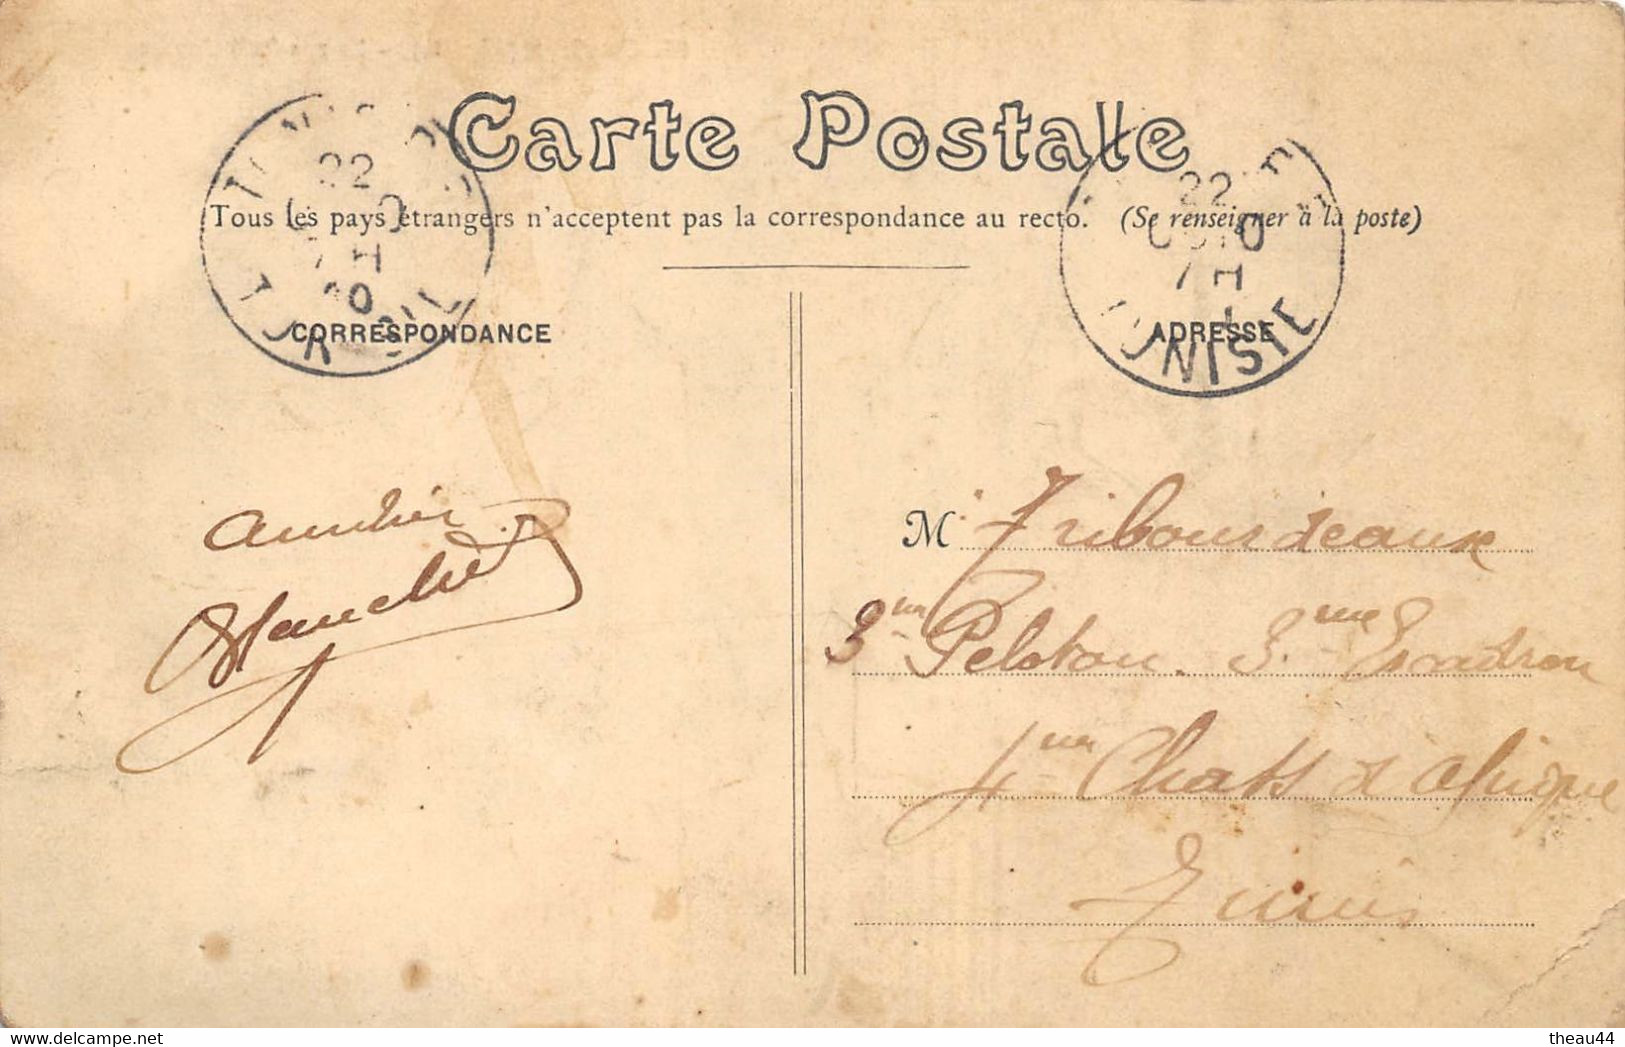 Carte Postale
Tous les pays étrangers n'acceptent pas la correspondance au recto. (Se renseigner à la poste)
22
7 H
10
22
7 H
TUNISIE
CORRESPONDANCE
ADRESSE
Amitiés
Blanchet
M Tribourdeaux
3me Peloton 3me Escadron
4me Chass d'Afrique
Tunis
www.delcampe.net
theau44